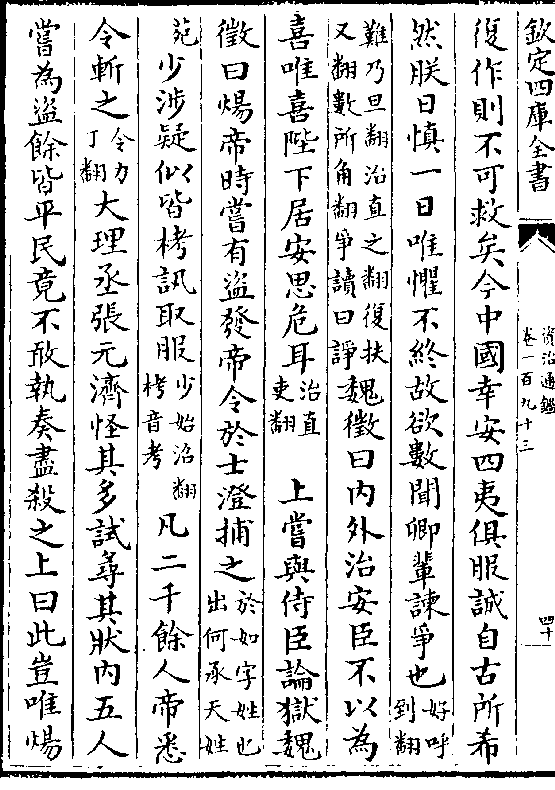 欽定四庫全書
資治通鑑
卷一百九十三
四十
復作則不可救矣今中國幸安四夷俱服誠自古所希
然朕日慎一日唯懼不終故欲數聞卿輩諫爭也好呼到翻
難乃旦翻治直之翻復扶又翻數所角翻爭讀曰諍魏徵曰内外治安臣不以為
喜唯喜陛下居安思危耳治直吏翻 上嘗與侍臣論獄魏
徵曰煬帝時嘗有盜發帝令於士澄捕之於如字姓也出何承天姓
苑少涉疑似皆栲訊取服少始沼翻栲音考凡二千餘人帝悉
令斬之令力丁翻大理丞張元濟怪其多試尋其狀内五人
嘗為盜餘皆平民竟不敢執奏盡殺之上曰此豈唯煬